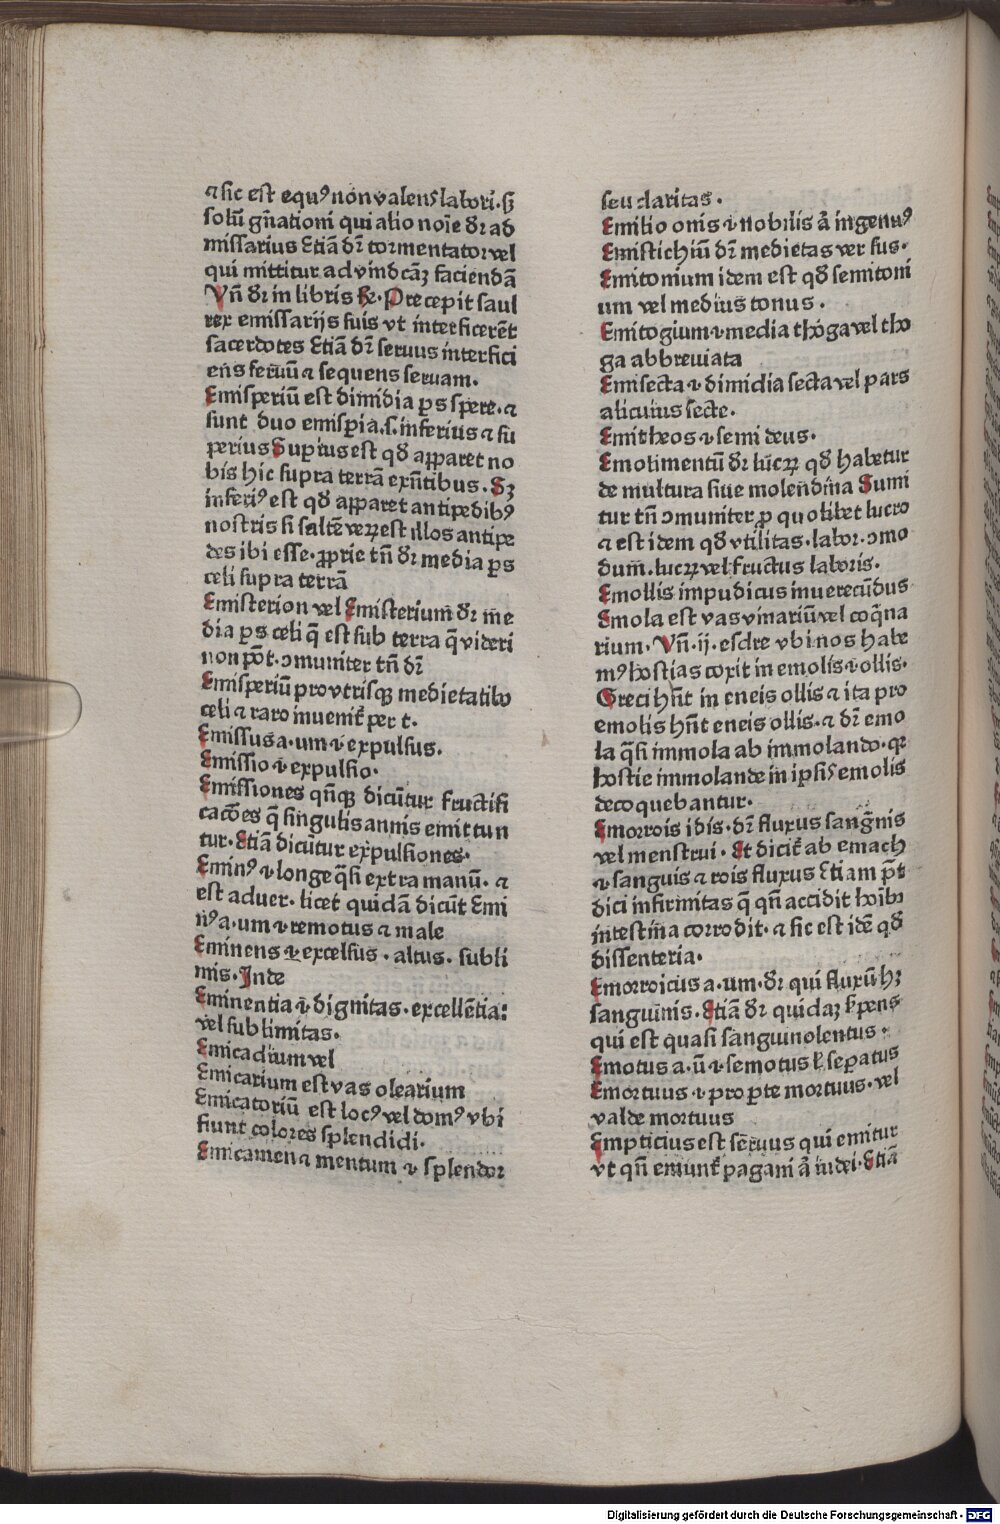 ⁊ sic est equꝰ non valens labori. sꝫ
solū gn̄ationi qui alio noīe dr̄ ad
missarius Etiā dr̄ tormentator vel
qui mittitur ad vindcāꝫ faciendā
Vn̄ dr̄ in libris Re. Precepit saul
rex emissarijs suis vt interficerēt
sacerdotes Etiā dr̄ seruus interfici
ens seruū ⁊ sequens seruam.
Emisperiū est dimidia ꝑs spere. ⁊
sunt duo emisꝑia .s. inferius ⁊ su
perius Suꝑius est qd̄ apparet no
bis hic supra terrā exn̄tibus. Sꝫ
inferiꝰ est qd̄ apparet antipedibꝰ
nostris si saltē veꝝ est illos antipe
des ibi esse. ꝓprie tn̄ dr̄ media ꝑs
celi supra terrā
Emisterion vel Emisterium dr̄ me
dia ꝑs celi q̄ est sub terra q̄ videri
non pōt. ↄmuniter tn̄ dr̄
Emisperiū pro vtrisqꝫ medietatibꝰ
celi ⁊ raro inuenit̄ per t.
Emissus a. um .i. expulsus.
Emissio .i. expulsio.
Emissiones qn̄qꝫ dicūtur fructifi
cacōes q̄ singulis annis emittun
tur. Etiā dicūtur expulsiones.
Eminꝰ .i. longe q̄si extra manū. ⁊
est aduer. licet quidā dicūt Emi
nꝰ a. um .i. remotus ⁊ male
Eminens .i. excelsus . altus . subli
mis. Inde
Eminentia .i. dignitas . excellētia:
vel sublimitas.
Emicadium vel
Emicarium est vas olearium
Emicatoriū est locꝰ vel domꝰ vbi
fiunt colores splendidi.
Emicamen ⁊ mentum .i. splendor
seu claritas .
Emilio onis .i. nobilis ā ingenuꝰ
Emistichiū dr̄ medietas versus.
Emitonium idem est qd̄ semitoni
um vel medius tonus .
Emitogium .i. media thoga vel tho
ga abbreviata
Emisecta .i. dimidia secta vel pars
alicuius secte.
Emitheos .i. semi deus.
Emolimentū dr̄ lucꝝ qd̄ habetur
de multura siue molendina Sumi
tur tn̄ ↄmuniter ꝓ quolibet lucro
⁊ est idem qd̄ vtilitas. labor. ↄmo
dum. lucꝝ vel fructus laboris.
Emollis impudicus inuerecūdus
Emola est vas vinariū vel coq̄na
rium. Vn̄ .ij. esdre vbi nos habe
mꝰ hostias coxit in emolis .i. ollis.
Greci hn̄t in eneis ollis ⁊ ita pro
emolis hn̄t eneis ollis. ⁊ dr̄ emo
la q̄si immola ab immolando. qꝛ
hostie immolande in ipsis emolis
decoquebantur.
Emorrois idis. dr̄ fluxus sanḡnis
vel menstrui . Et dicit̄ ab emach
.i. sanguis ⁊ rois fluxus Etiam pōt
dici infirmitas q̄ qn̄ accidit hoībꝰ
intestina corrodit. ⁊ sic est idē qd̄
dissenteria.
Emorroicus a. um. dr̄ qui fluxū hꝫ
sanguinis. Etiā dr̄ quidaꝫ serpens
qui est quasi sanguinolentus .
Emotus a. ū .i. semotus ł seꝑatus
Emortuus .i. pro ꝑte mortuus. vel
valde mortuus
Empticius est seruus qui emitur
vt qn̄ emunt̄ pagani ā iudei. Etiā
Digitalisierung gefördert durch die Deutsche Forschungsgemeinschaft - DFG